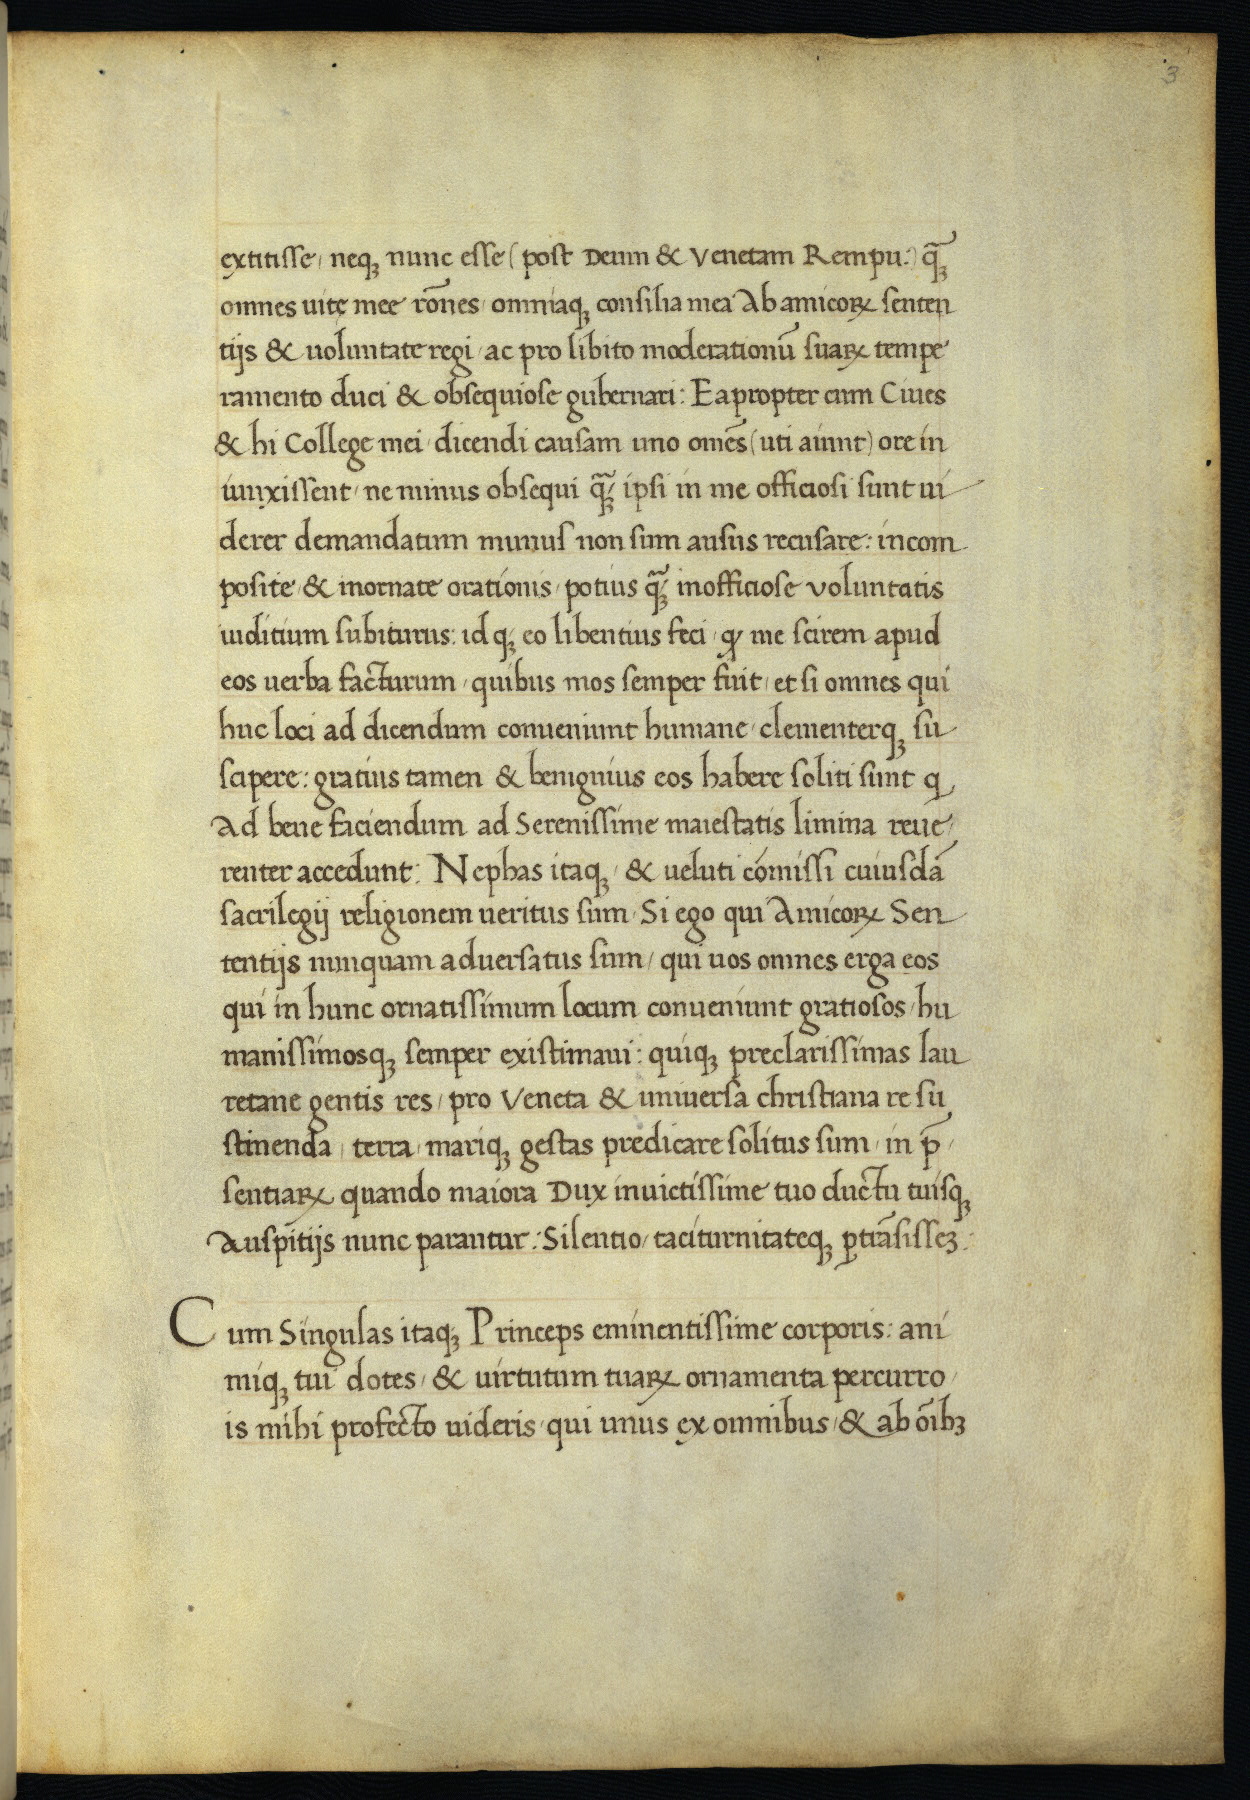 3
extitisse, neqꝫ nunc esse (post Deum & Venetam Rempu:) qꝫ̃
omnes uitę mee rōnes, omniaqꝫ consilia mea Ab amicoꝝ senten
tijs & uoluntate regi, ac pro libito moderationū suaꝝ tempe
ramento duci & obsequiose gubernari: Eapropter cum Ciues
& hi College mei, dicendi causam uno omēs (uti aiunt) ore in
iunxissent, ne minus obsequi qꝫ̃ ipsi in me officiosi sunt ui
derer demandatum munus non sum ausus recusare: incom
posite, & inornate orationis, potius qꝫ̃ inofficiose voluntatis
iuditium subiturus: id qꝫ eo libentius feci, ꝙ me scirem apud
eos uerba facturum, quibus mos semper fuit, et si omnes qui
huc loci ad dicendum conueniunt humane, clementerqꝫ su
scipere: gratius tamen & benignius eos habere soliti sunt q
Ad bene faciendum ad Serenissime maiestatis limina reue,
renter accedunt: Nephas itaqꝫ, & ueluti cōmissi cuiusdā
sacrilegij religionem ueritus sum, Si ego qui Amicoꝝ Sen
tentijs nunquam aduersatus sum, qui uos omnes erga eos
qui in hunc ornatissimum locum conueniunt gratiosos, hu
manissimosqꝫ semper existimaui: quiqꝫ preclarissimas lau
retane gentis res, pro Veneta & uniuersa christiana re su
stinenda, terra, mariqꝫ gestas predicare solitus sum, in p̄,
sentiaꝝ quando maiora Dux inuictissime tuo ductu tuisqꝫ
Auspitijs nunc parantur: Silentio, taciturnitateqꝫ ꝑtrāsisseꝫ:
Cum Singulas itaqꝫ Princeps eminentissime corporis: ani
miqꝫ tui dotes, & uirtutum tuaꝝ ornamenta percurro,
is mihi profecto uideris, qui unus ex omnibus, & ab oībꝫ